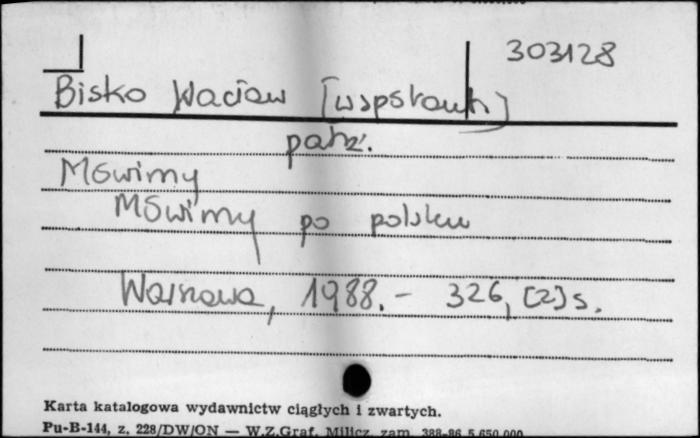 303128
Bisko Wacław [współaut.]
patrz.
Mówimy
Mówimy po polsku
Warszawa, 1988. – 326, [2] s.
Karta katalogowa wydawnictw ciągłych i zwartych.
Pu-B-144, z. 228/DW/ON — W.Z.Graf. Milicz, zam. 388-86 5.650.000